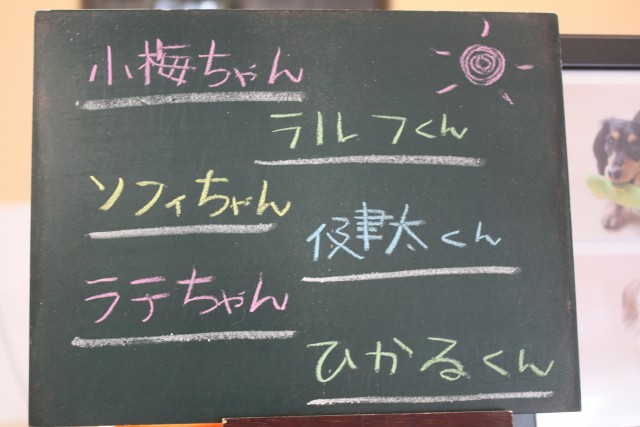 小梅ちゃん
ラルフくん
ソフィちゃん
健太くん
ラテちゃん
ひかるくん